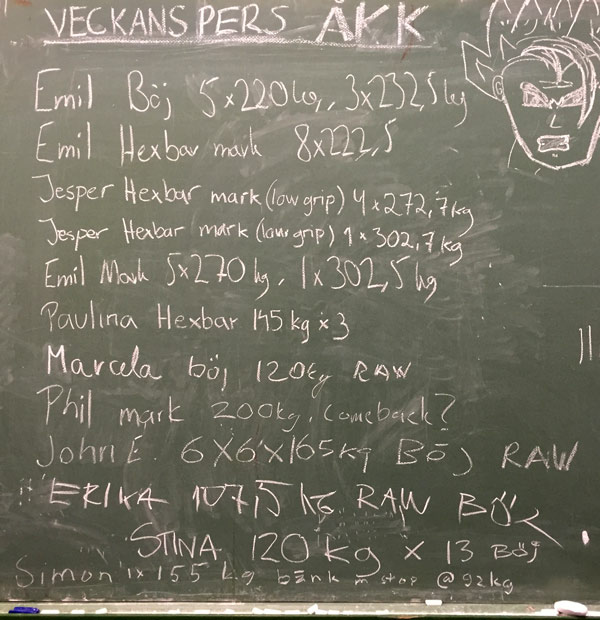 VECKANS PERS ÅKK
Emil Böj 5x220kg, 3x232,5kg
Emil Hexbar mark 8x222,5
Jesper Hexbar mark (low grip) 4x272,7kg
Jesper Hexbar mark (low grip) 1x302,7kg
Emil Mark 5x270kg, 1x302,5kg
Paulina Hexbar 145kg x3
Marcela böj 120kg RAW
Phil mark 200kg, comeback?
John E. 6X6X165kg BÖJ RAW
ERIKA 107,5 kg RAW BÖJ
STINA 120kg x 13 BÖJ
Simon 1x155kg bänk m stop @92kg